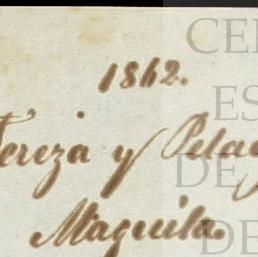 1862.
Tereza y Pelag
Maquila.
CE
ES
DE
DE